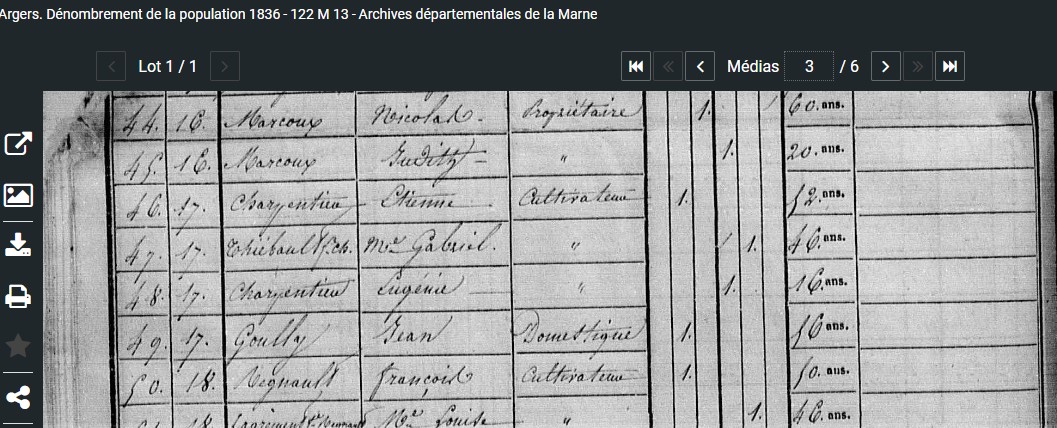 Argers. Dénombrement de la population 1836 - 122 M 13 - Archives départementales de la Marne
Lot 1 / 1 Médias 3 / 6
44. 16. Marcoux Nicolas. Propriétaire 1. 60. ans.
45. 16. Marcoux Judith " 1. 20. ans.
46. 17. Charpentier Etienne Cultivateur 1. 52. ans.
47. 17. Thiébault f. Ch. Mie Gabriel. " 1. 46. ans.
48. 17. Charpentier Eugénie " 1. 16. ans.
49. 17. Goully Jean Domestique 1. 56. ans.
50. 18. Regnault François Cultivateur 1. 50. ans.
18. Louise " 1. 46. ans.